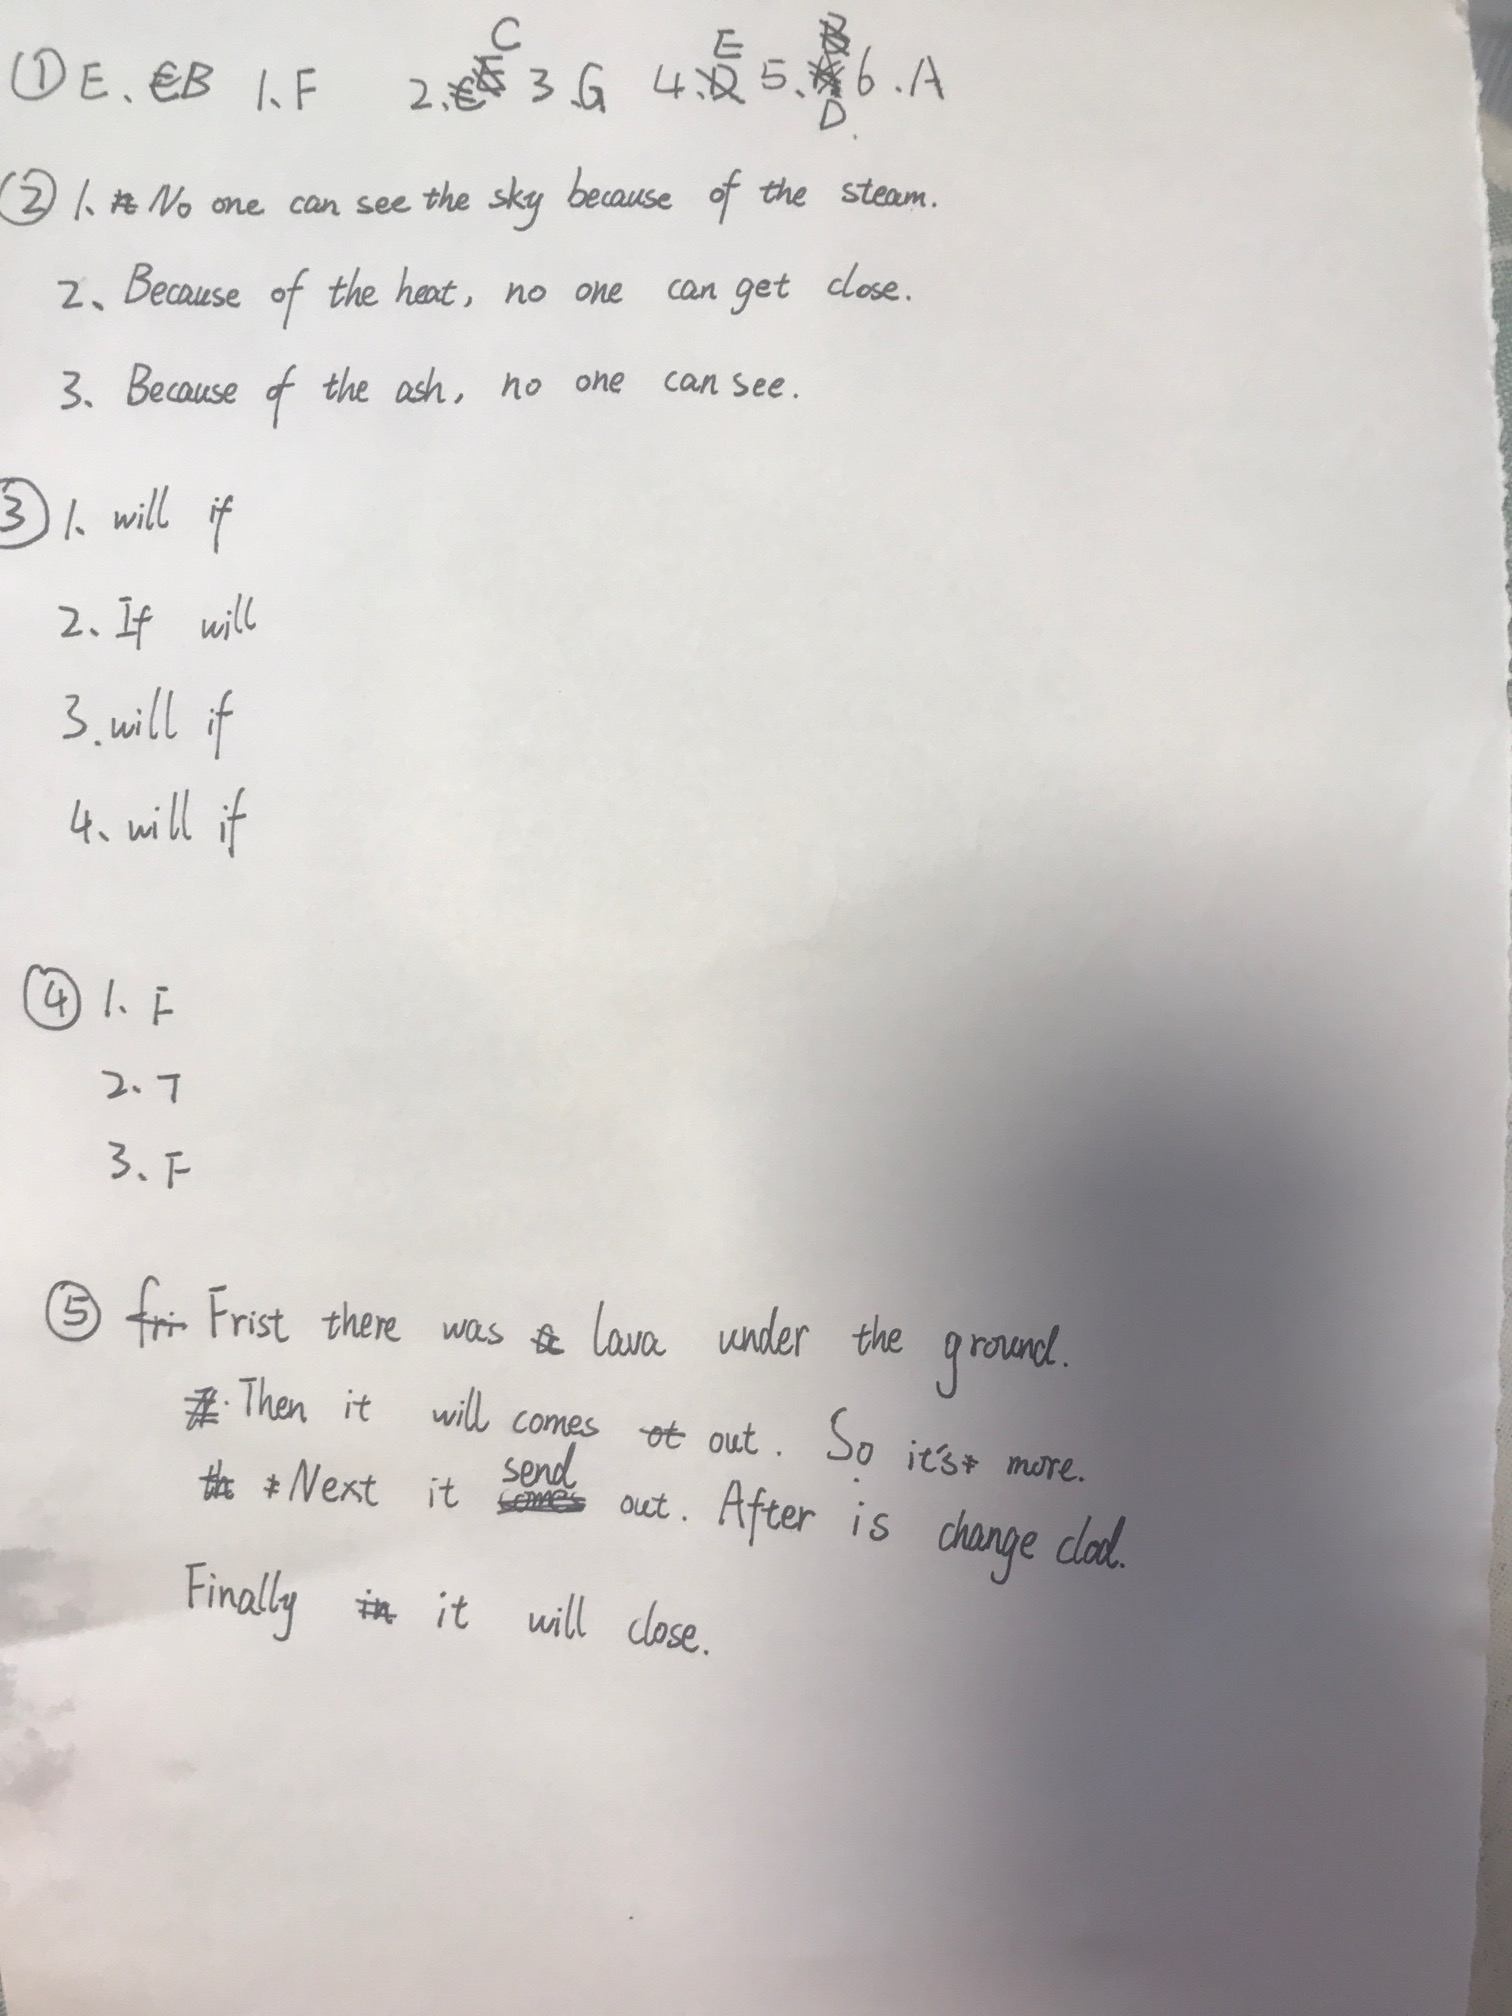 ① E. B 1. F 2. C 3. G 4. E 5. D 6. A
② 1、 No one can see the sky because of the steam.
2、 Because of the heat, no one can get close.
3、 Because of the ash, no one can see.
③ 1、 will if
2、 If will
3. will if
4、 will if
④ 1、 F
2、 T
3、 F
⑤ Frist there was lava under the ground.
Then it will comes out. So it's more.
Next it send out. After is change clod.
Finally it will close.